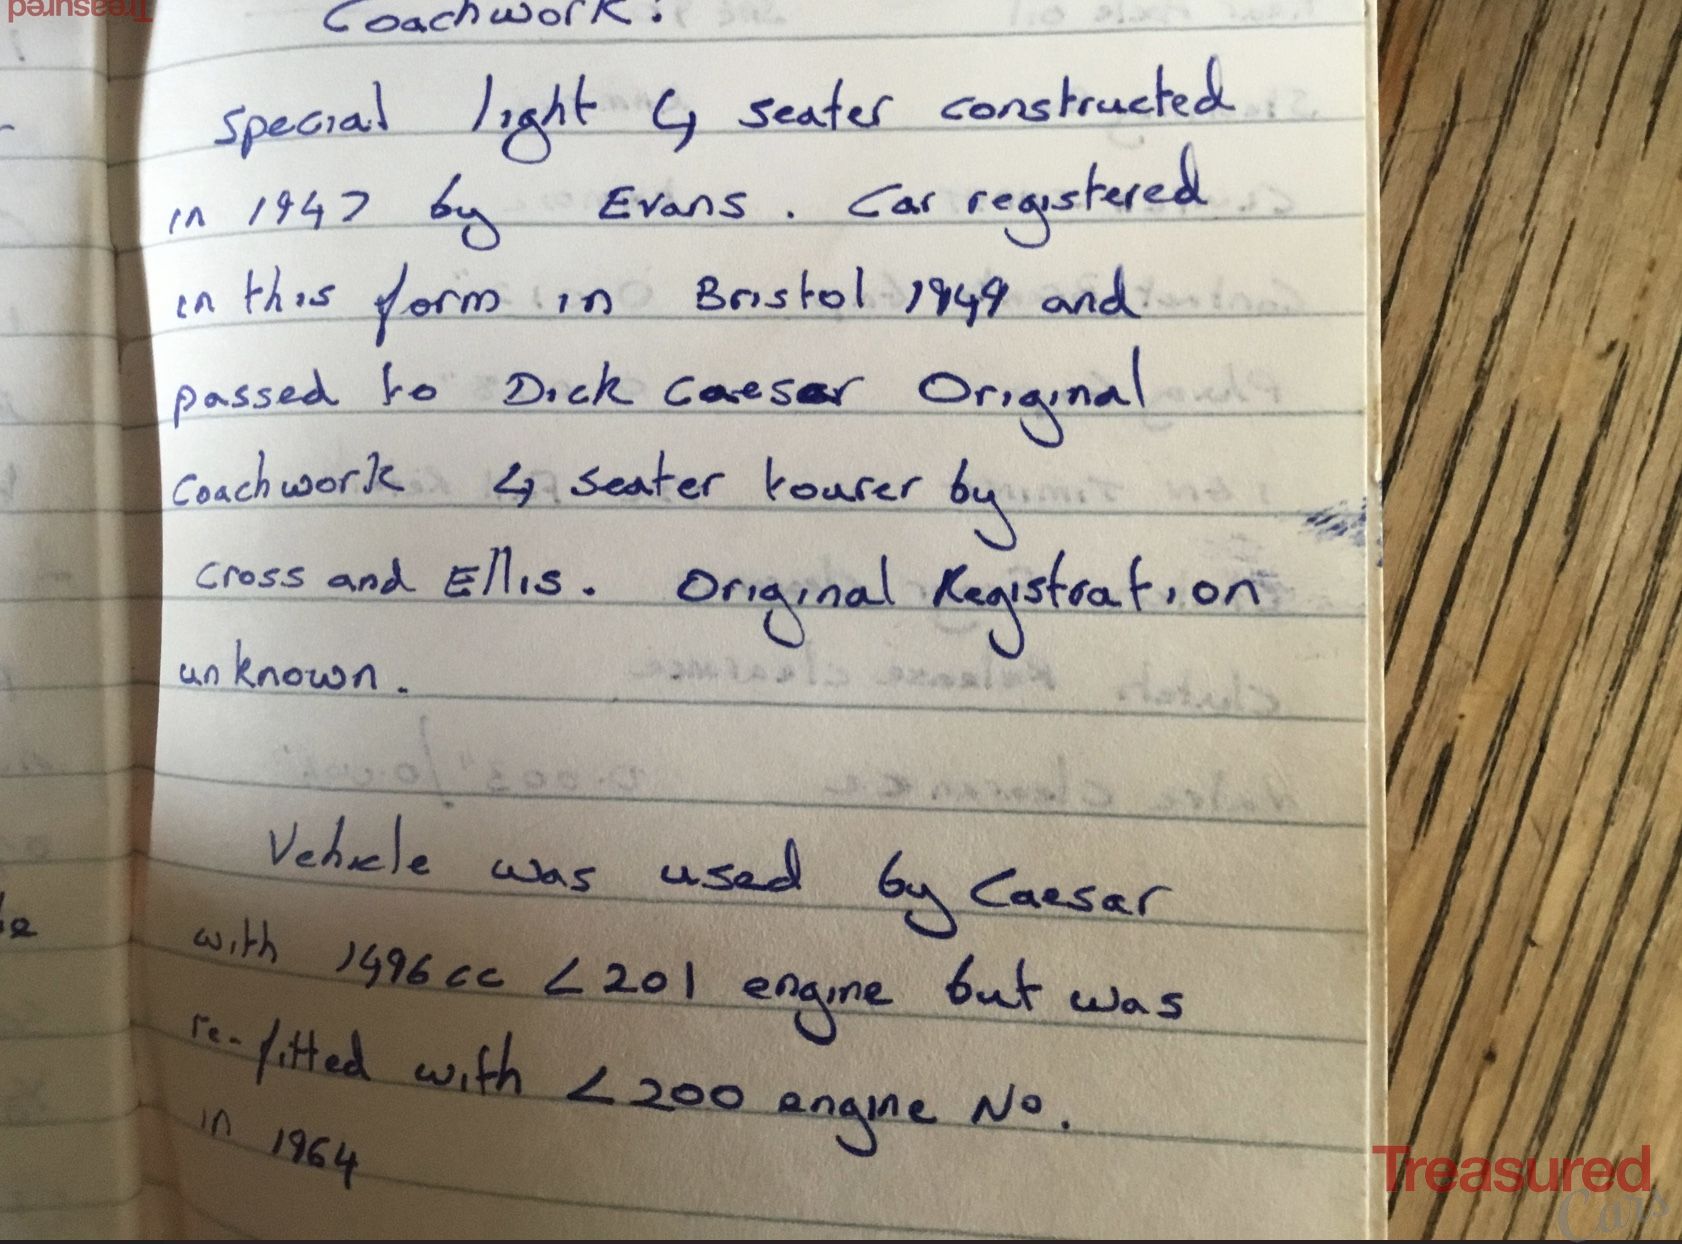 Coachwork:
Special light 4 seater constructed
in 1947 by Evans. Car registered
in this form in Bristol 1949 and
passed to Dick Caesar Original
Coachwork 4 seater tourer by
Cross and Ellis. Original Registration
unknown.
Vehicle was used by Caesar
with 1496cc L201 engine but was
re-fitted with L200 engine No.
in 1964
Treasured
Cars